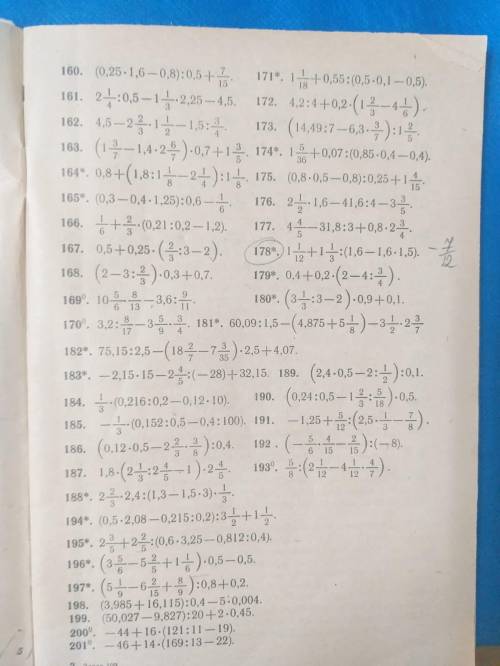 160. (0,25·1,6−0,8):0,5+7/15. 171*. 1 1/18+0,55:(0,5·0,1−0,5).
161. 2 1/4:0,5−1 1/3·2,25−4,5. 172. 4,2:4+0,2·(1 2/3−4 1/6).
162. 4,5−2 2/3·1 1/2−1,5:3/4. 173. (14,49:7−6,3·3/7):1 2/5.
163. (1 3/7−1,4·2 6/7)·0,7+1 3/5. 174*. 1 5/36+0,07:(0,85·0,4−0,4).
164*. 0,8+(1,8:1 1/8−2 1/4):1 1/8. 175. (0,8·0,5−0,8):0,25+1 4/15.
165*. (0,3−0,4·1,25):0,6−1 1/6. 176. 2 1/2·1,6−41,6:4−3 3/5.
166. 1/6+2/3·(0,21:0,2−1,2). 177. 4 4/5−31,8:3+0,8·2 3/4.
167. 0,5+0,25·(2/3:3−2). 178*. 1 1/12+1 1/3:(1,6−1,6·1,5). −7/12
168. (2−3:2/3)·0,3+0,7. 179*. 0,4+0,2·(2−4:3/4).
169⁰. 10 5/6·8/13−3,6:9/11. 180*. (3 1/3:3−2)·0,9+0,1.
170⁰. 3,2:8/17−3 5/9·3/4. 181*. 60,09:1,5−(4,875+5 1/8)−3 1/2·2 3/7
182*. 75,15:2,5−(18 2/7−7 3/35)·2,5+4,07.
183*. −2,15·15−2 4/5:(−28)+32,15. 189. (2,4·0,5−2:1/2):0,1.
184. 1/3·(0,216:0,2−0,12·10). 190. (0,24:0,5−1 2/3:5/18)·0,5.
185. −1/3·(0,152:0,5−0,4:100). 191. −1,25+5/12:(2,5·1/3−7/8).
186. (0,12·0,5−2 2/3·3/8):0,4. 192. (−5/6·4/15−2/15):(−8).
187. 1,8·(2 1/3:2 4/5−1)·2 4/5. 193⁰. 5/8:(2 1/12−4 1/12·4/7).
188*. 2 2/3·2,4:(1,3−1,5·3)·1/3.
194*. (0,5·2,08−0,215:0,2):3 1/2+1 1/2.
195*. 2 3/5+2 2/5:(0,6·3,25−0,812:0,4).
196*. (3 5/6−5 2/5+1 1/6)·0,5−0,5.
197*. (5 1/9−6 2/15+8/9):0,8+0,2.
198. (3,985+16,115):0,4−5·0,004.
199. (50,027−9,827):20+2·0,45.
200⁰. −44+16·(121:11−19).
201⁰. −46+14·(169:13−22).